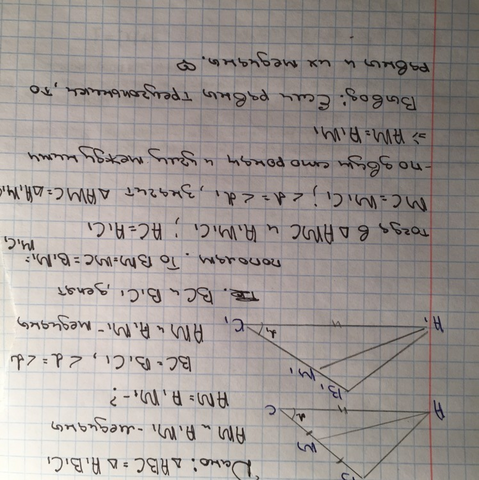 Дано: △ABC = △A₁B₁C₁
AM и A₁M₁ - медианы
AM = A₁M₁ - ?
BC = B₁C₁, <α = <α
AM и A₁M₁ - медианы
BC и B₁C₁, делят
пополам. То BM=MC=B₁M₁=
M₁C₁
тогда в △AMC и A₁M₁C₁ ; AC=A₁C₁
MC = M₁C₁ ; <α = <α₁, значит △AMC=△A₁M₁C₁
- по двум сторонам и углу между ними
⇒ AM = A₁M₁
Вывод: Если равны треугольники, то
равны и их медианы.
B
M
A
α
C
B₁
M₁
A₁
α
C₁